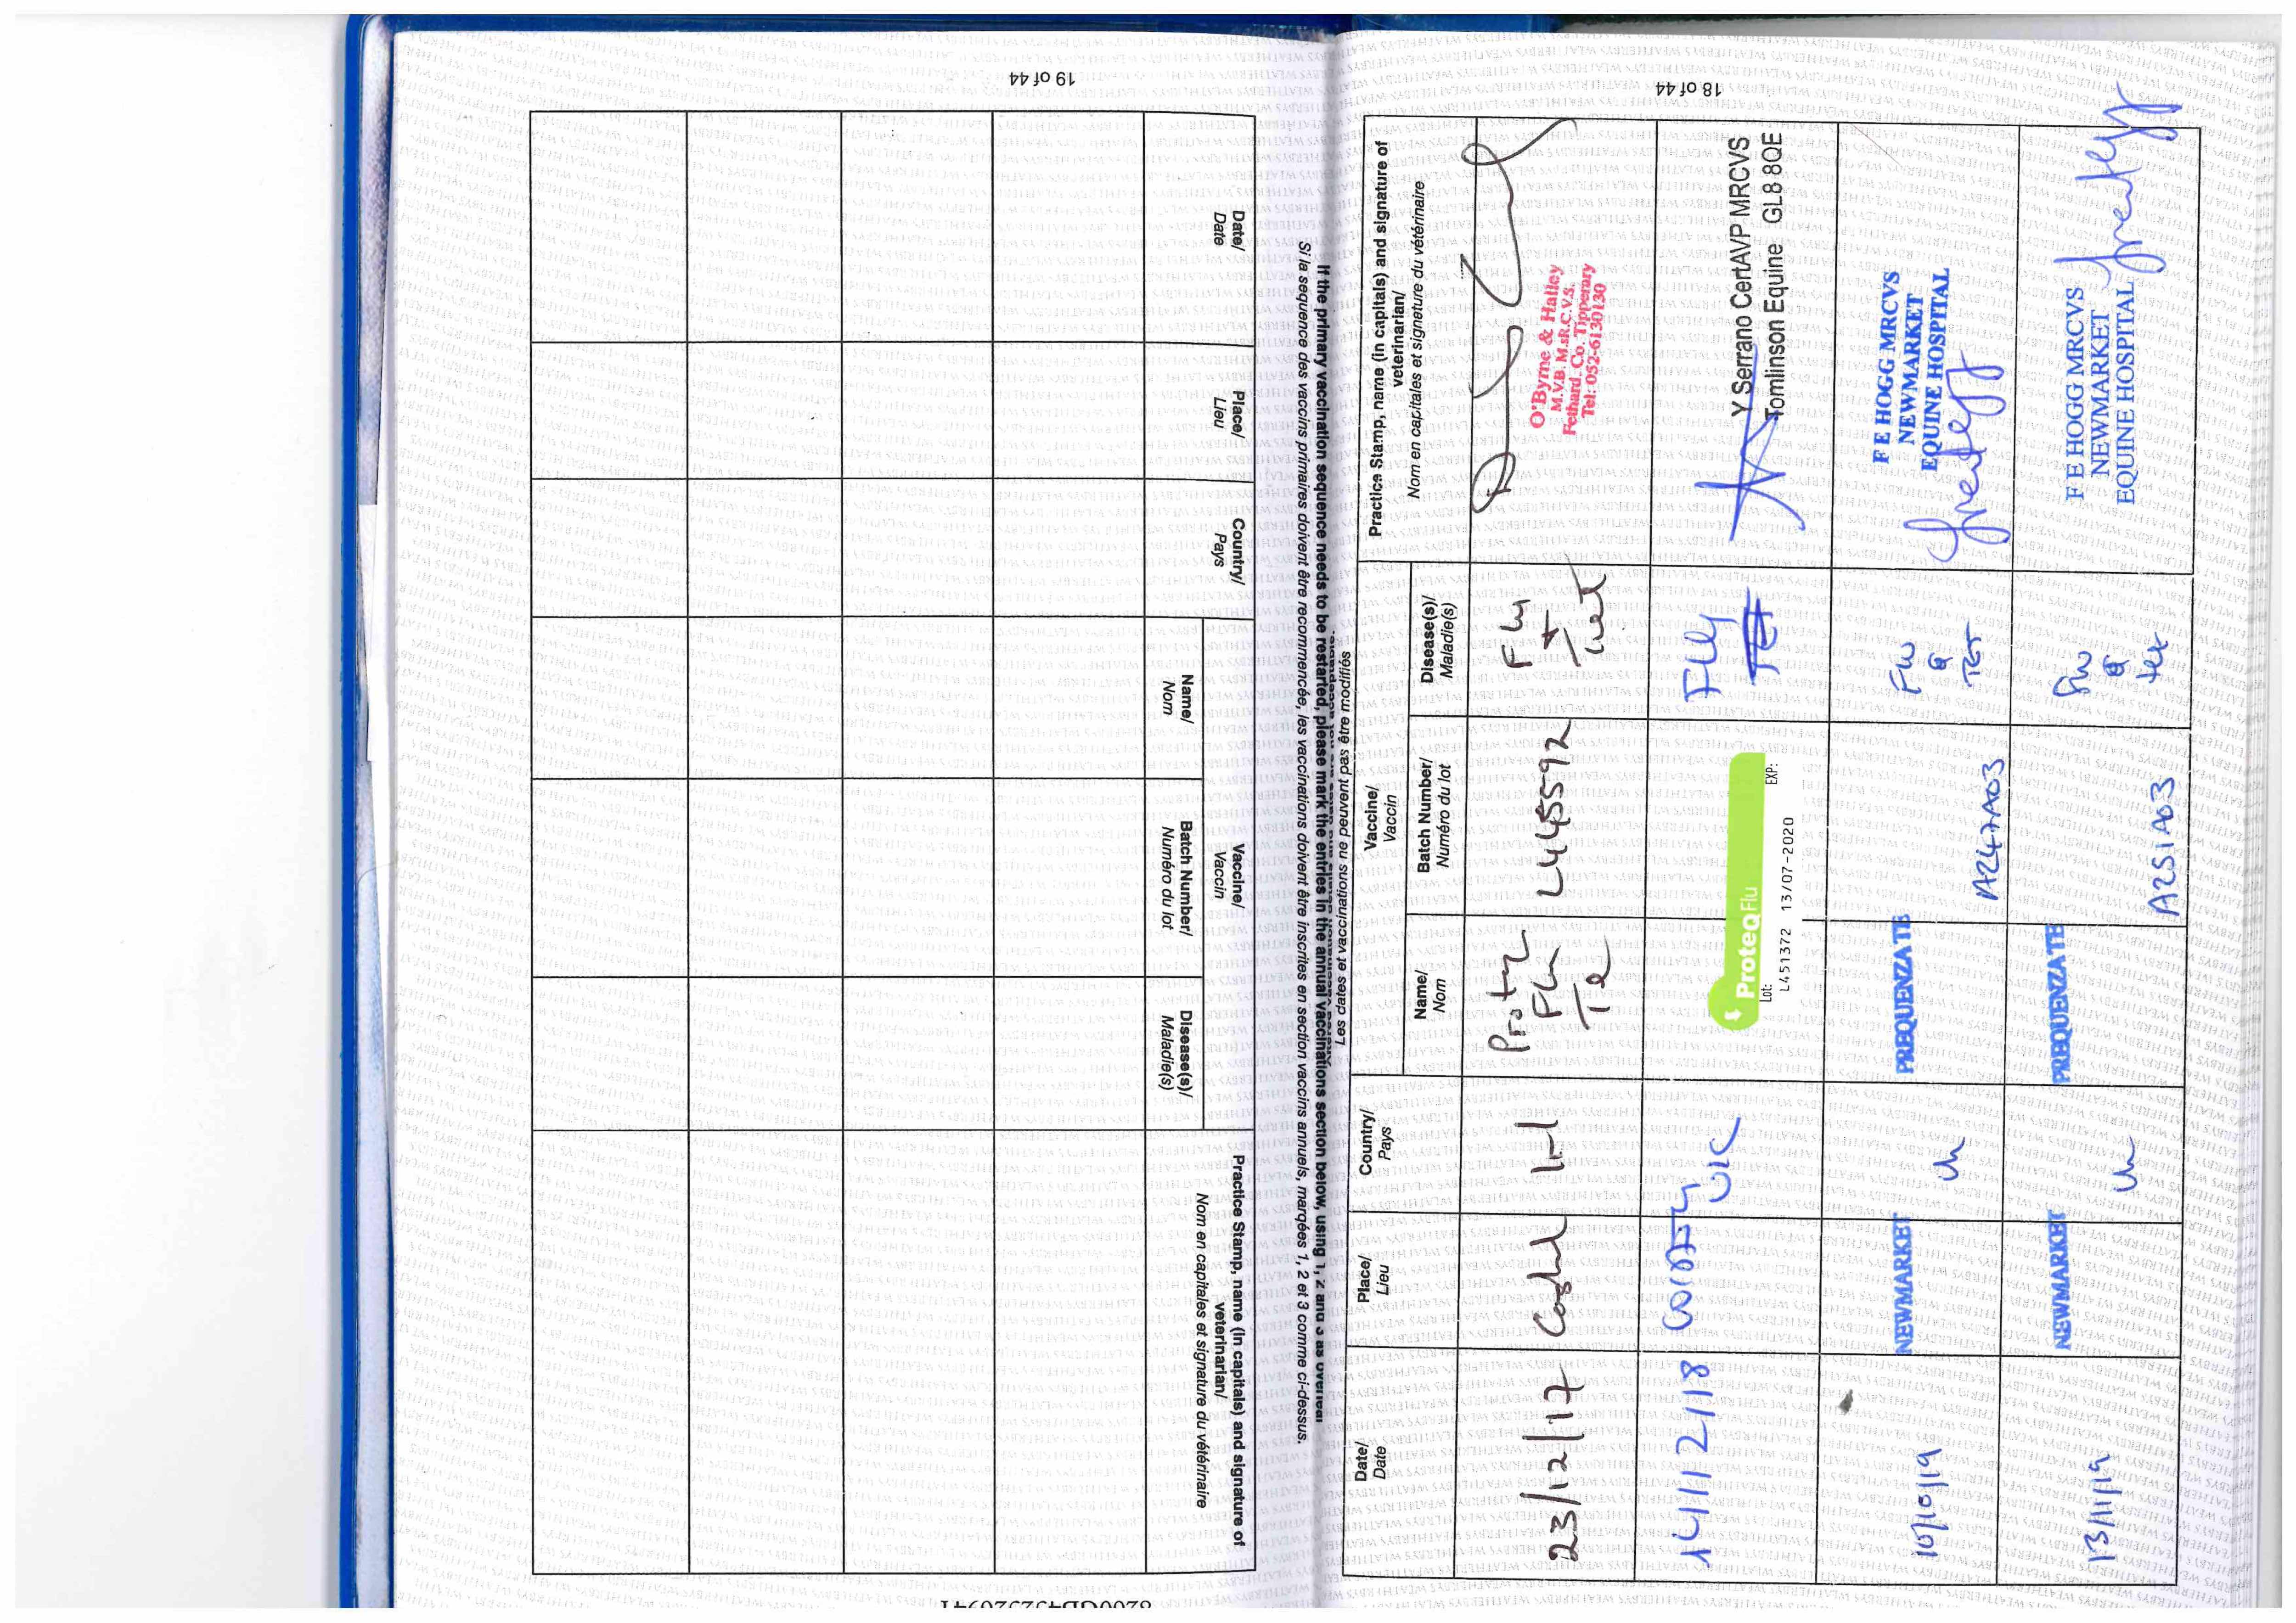 18 of 44
Les dates et vaccinations ne peuvent pas être modifiés
Date/
Date
Place/
Lieu
Country/
Pays
Vaccine/
Vaccin
Name/
Nom
Batch Number/
Numéro du lot
Disease(s)/
Maladie(s)
Practice Stamp, name (in capitals) and signature of
veterinarian/
Nom en capitales et signature du vétérinaire
23/12/17
Cashel
Irl
Flu
Te
L445592
Flu
+
Tet
O'Byrne & Halley
M.V.B. M.sR.C.V.S.
Fethard. Co. Tipperary
Tel: 052-6130130
14/12/18
UK
ProteqFlu
Lot:
EXP:
L451372 13/07-2020
Flu
Y Serrano CertAVP MRCVS
Tomlinson Equine GL8 8QE
10/10/19
NEWMARKET
UK
PREQUENZA TE
A247A03
Flu
&
TET
F E HOGG MRCVS
NEWMARKET
EQUINE HOSPITAL
13/11/19
NEWMARKET
UK
PREQUENZA TE
A251A03
Flu
&
tet
F E HOGG MRCVS
NEWMARKET
EQUINE HOSPITAL
19 of 44
If the primary vaccination sequence needs to be restarted, please mark the entries in the annual vaccinations section below, using 1, 2 and 3 as overleaf
Si la sequence des vaccins primaires doivent être recommencée, les vaccinations doivent être inscrites en section vaccins annuels, marqées 1, 2 et 3 comme ci-dessus.
Date/
Date
Place/
Lieu
Country/
Pays
Vaccine/
Vaccin
Name/
Nom
Batch Number/
Numéro du lot
Disease(s)/
Maladie(s)
Practice Stamp, name (in capitals) and signature of
veterinarian/
Nom en capitales et signature du vétérinaire